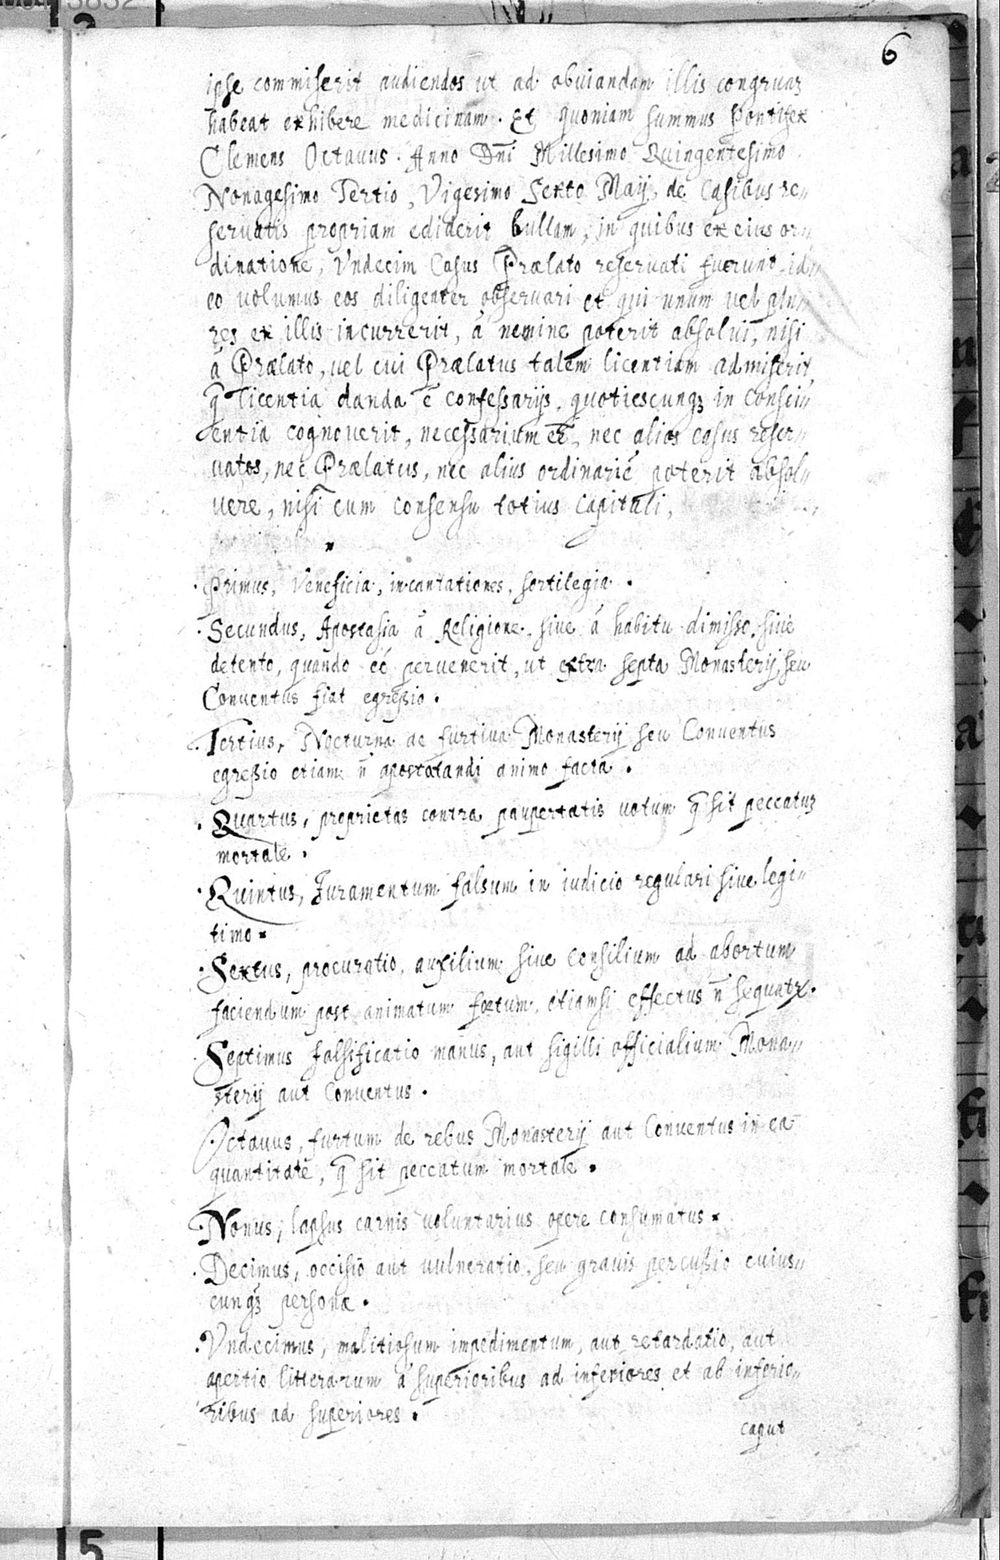 6
ipse commiserit audiendos ut ad obuiandam illis congruaʒ
habeat exhibere medicinam. Et quoniam summus Pontifex
Clemens Octauus. Anno Dnī Millesimo Quingentesimo
Nonagesimo Tertio, Vigesimo Sexto Maij, de Casibus re„
seruatis propriam ediderit bullam, in quibus ex eius or„
dinatione, Vndecim Casus Prælato reseruati fuerunt id„
eo uolumus eos diligenter obseruari et qui unum uel plu„
res ex illis incurrerit, à nemine poterit absolui, nisi
à Prælato, uel cui Prælatus talem licentiam admiserit
q̄ licentia danda ē Confessarijs, quotiescunqʒ in Consci„
entia cognouerit, necessarium eē, nec alios casus reser„
uatos, nec Prælatus, nec alius ordinariē poterit absol„
uere, nisi cum consensu totius Capituli,
Primus, Veneficia, incantationes, sortilegia.
Secundus, Apostasia à Religione, siue à habitu dimisso, siue
detento, quando eó peruenerit, ut extra septa Monasterij, seu
Conuentus fiat egressio.
Tertius, Nocturna ac furtiua Monasterij seu Conuentus
egressio etiam n̄ apostatandi animo facta.
Quartus, proprietas contra paupertatis uotum q̄ sit peccatuʒ
mortale.
Quintus, Juramentum falsum in iudicio regulari siue legi„
timo.
Sextus, procuratio, auxilium siue Consilium ad abortum
faciendum post animatum fœtum, etiamsi effectus n̄ sequatr.
Septimus falsificatio manus, aut sigilli officialium Mona„
sterij aut Conuentus.
Octauus, furtum de rebus Monasterij aut Conuentus in ea
quantitate, q̄ sit peccatum mortale.
Nonus, lapsus carnis uoluntarius opere consumatus.
Decimus, occisio aut uulneratio, seu grauis percussio cuius„
cunqʒ personæ.
Vndecimus, malitiosum impedimentum, aut retardatio, aut
apertio litterarum à superioribus ad inferiores et ab inferio„
ribus ad superiores.
caput
5